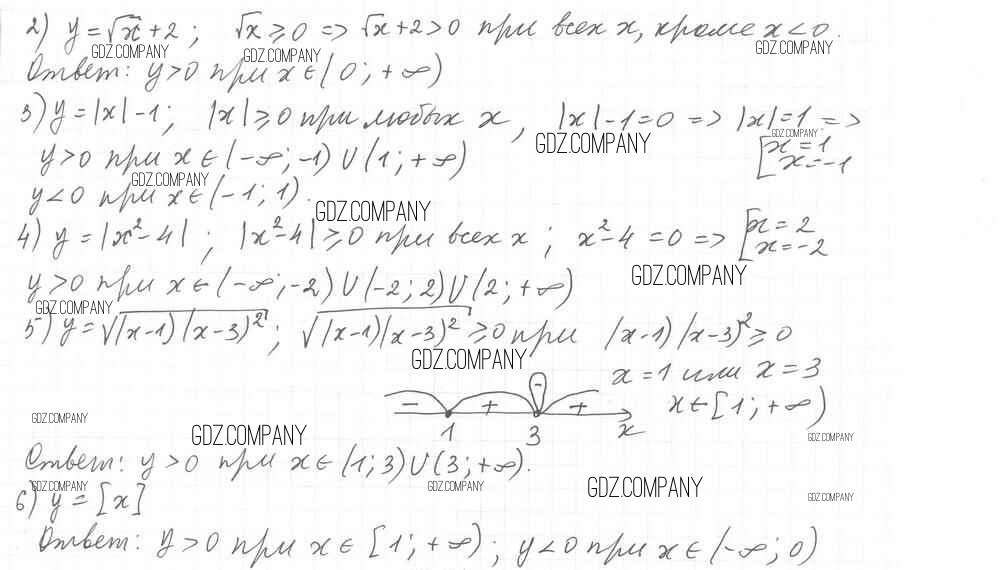 2) y = √x + 2 ; √x ≥ 0 => √x + 2 > 0 при всех x, кроме x < 0.
GDZ.COMPANY GDZ.COMPANY GDZ.COMPANY
Ответ: y > 0 при x ∈ (0 ; +∞)
3) y = |x| - 1 ; |x| ≥ 0 при любых x , |x| - 1 = 0 => |x| = 1 =>
GDZ.COMPANY GDZ.COMPANY
[x = 1
x = -1
y > 0 при x ∈ (-∞ ; -1) ∪ (1 ; +∞)
GDZ.COMPANY
y < 0 при x ∈ (-1 ; 1).
GDZ.COMPANY
4) y = |x² - 4| ; |x² - 4| ≥ 0 при всех x ; x² - 4 = 0 => [x = 2
x = -2
GDZ.COMPANY
y > 0 при x ∈ (-∞ ; -2) ∪ (-2 ; 2) ∪ (2 ; +∞)
GDZ.COMPANY
5) y = √(x-1)(x-3)² ; √(x-1)(x-3)² ≥ 0 при (x-1)(x-3)² ≥ 0
GDZ.COMPANY
x = 1 или x = 3
- + - +
x ∈ [1 ; +∞)
1 3 x
GDZ.COMPANY GDZ.COMPANY GDZ.COMPANY
Ответ: y > 0 при x ∈ (1 ; 3) ∪ (3 ; +∞).
GDZ.COMPANY GDZ.COMPANY GDZ.COMPANY GDZ.COMPANY
6) y = [x]
Ответ: y > 0 при x ∈ [1 ; +∞) ; y < 0 при x ∈ (-∞ ; 0)